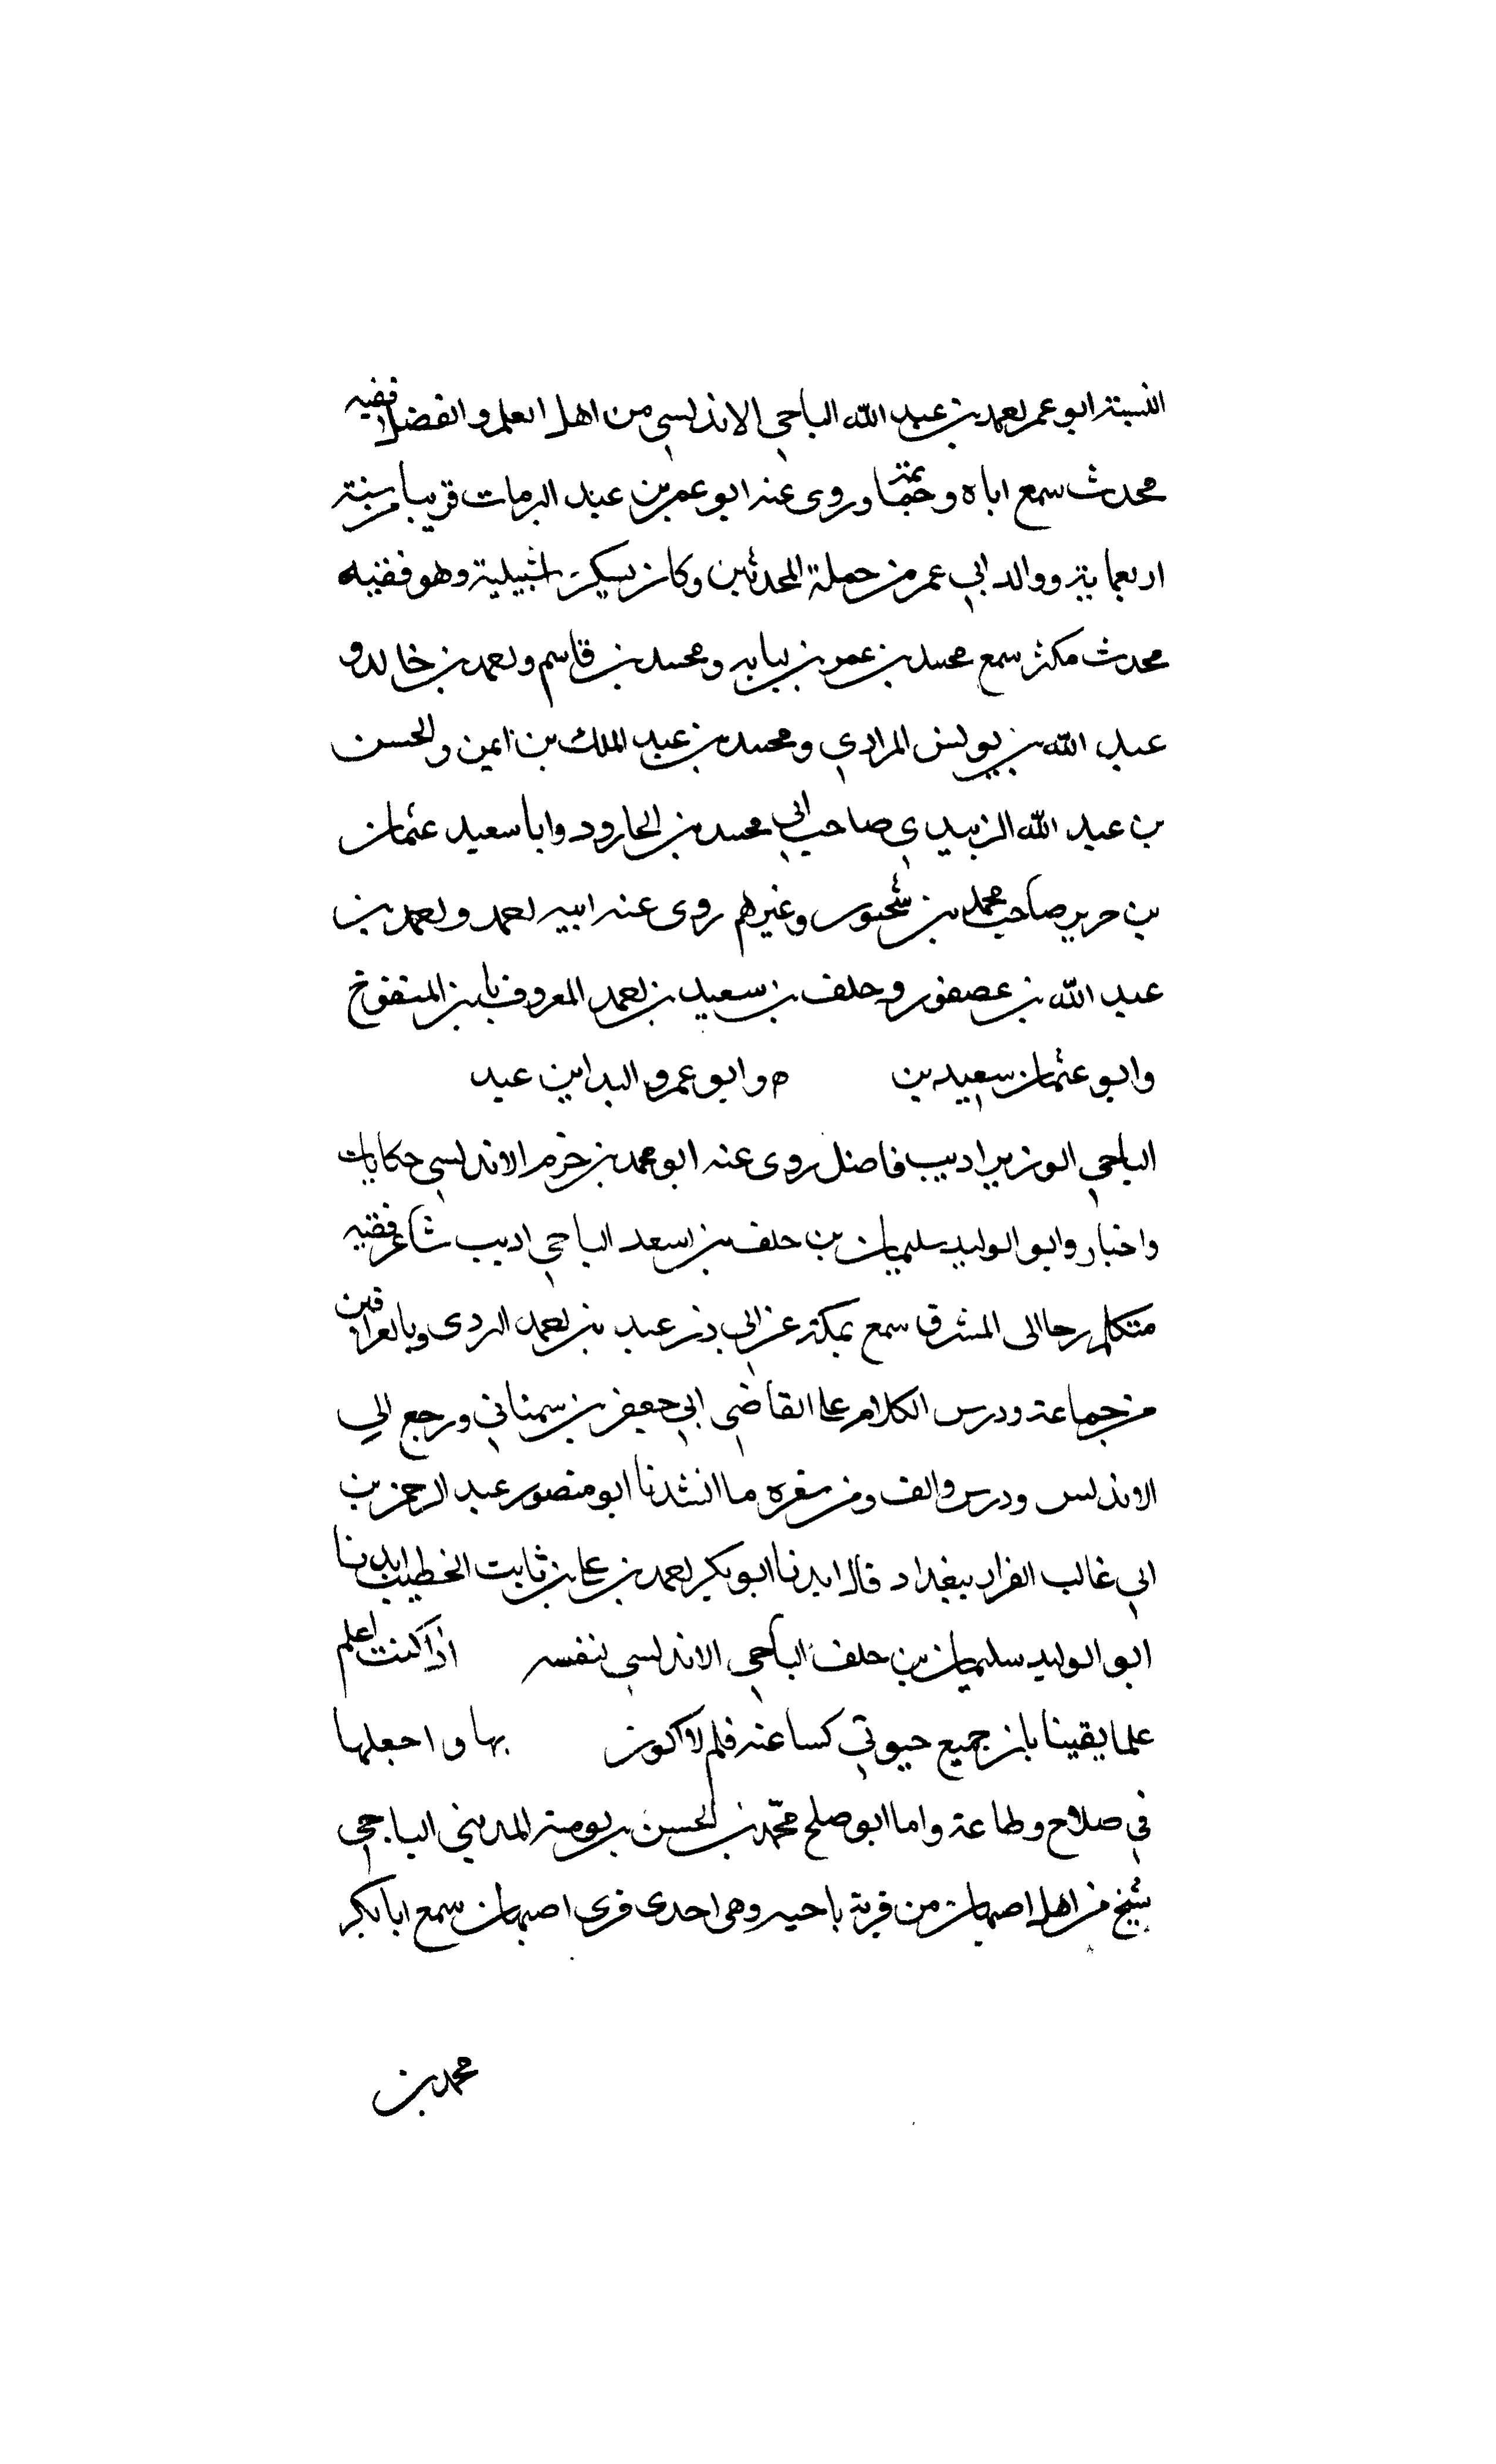 النسبة ابو عمر احمد بن عبد الله الباجي الاندلسي من اهل العلم والفضل فقيه
محدث سمع اباه وجماعة وروى عنه ابو عمر بن عبد البر مات قريبا من سنة
اربعماية ووالد ابي عمر من جملة المحدثين وكان يسكن باشبيلية وهو فقيه
محدث مكثر سمع محمد بن عمر بن لبابه ومحمد بن قاسم واحمد بن خالد و
عبد الله بن يونس المرادي ومحمد بن عبد الملك بن ايمن والحسن
بن عبد الله الزبيدي صاحب ابي محمد بن الجارود وابا سعيد عثمان
بن جرير صاحب محمد بن سحنون وغيرهم روى عنه ابنه احمد واحمد بن
عبد الله بن عصفور وخلف بن سعيد بن احمد المعروف بابن المنفوخ
وابو عثمان سعيد بن ه وابو عمرو البداين عبد
الباجي الوزير اديب فاضل روى عنه ابو محمد بن حزم الاندلسي حكايات
واخبار وابو الوليد سليمان بن خلف بن سعد الباجي اديب شاعر فقيه
متكلم رحل الى المشرق سمع بمكة عن ابي ذر عبد بن احمد الهروي وبالعراقين
من جماعة ودرس الكلام على القاضي ابي جعفر بن سمناني ورجع الي
الاندلس ودرس والف ومن شعره ما انشدنا ابو منصور عبد الرحمن بن
ابي غالب القزاز ببغداد قال انشدنا ابو بكر احمد بن علي بن ثابت الخطيب انشدنا
ابو الوليد سليمان بن خلف الباجي الاندلسي لنفسه اذا كنت اعلم
علما يقينا بان جميع حيوتي كساعة فلم لا اكون بها واجعلها
في صلاح وطاعة واما ابو صلح محمد بن الحسن بن بومة المديني الباجي
شيخ من اهل اصبهان من قرية باجيه وهي احدى قرى اصبهان سمع ابا بكر
محمد بن